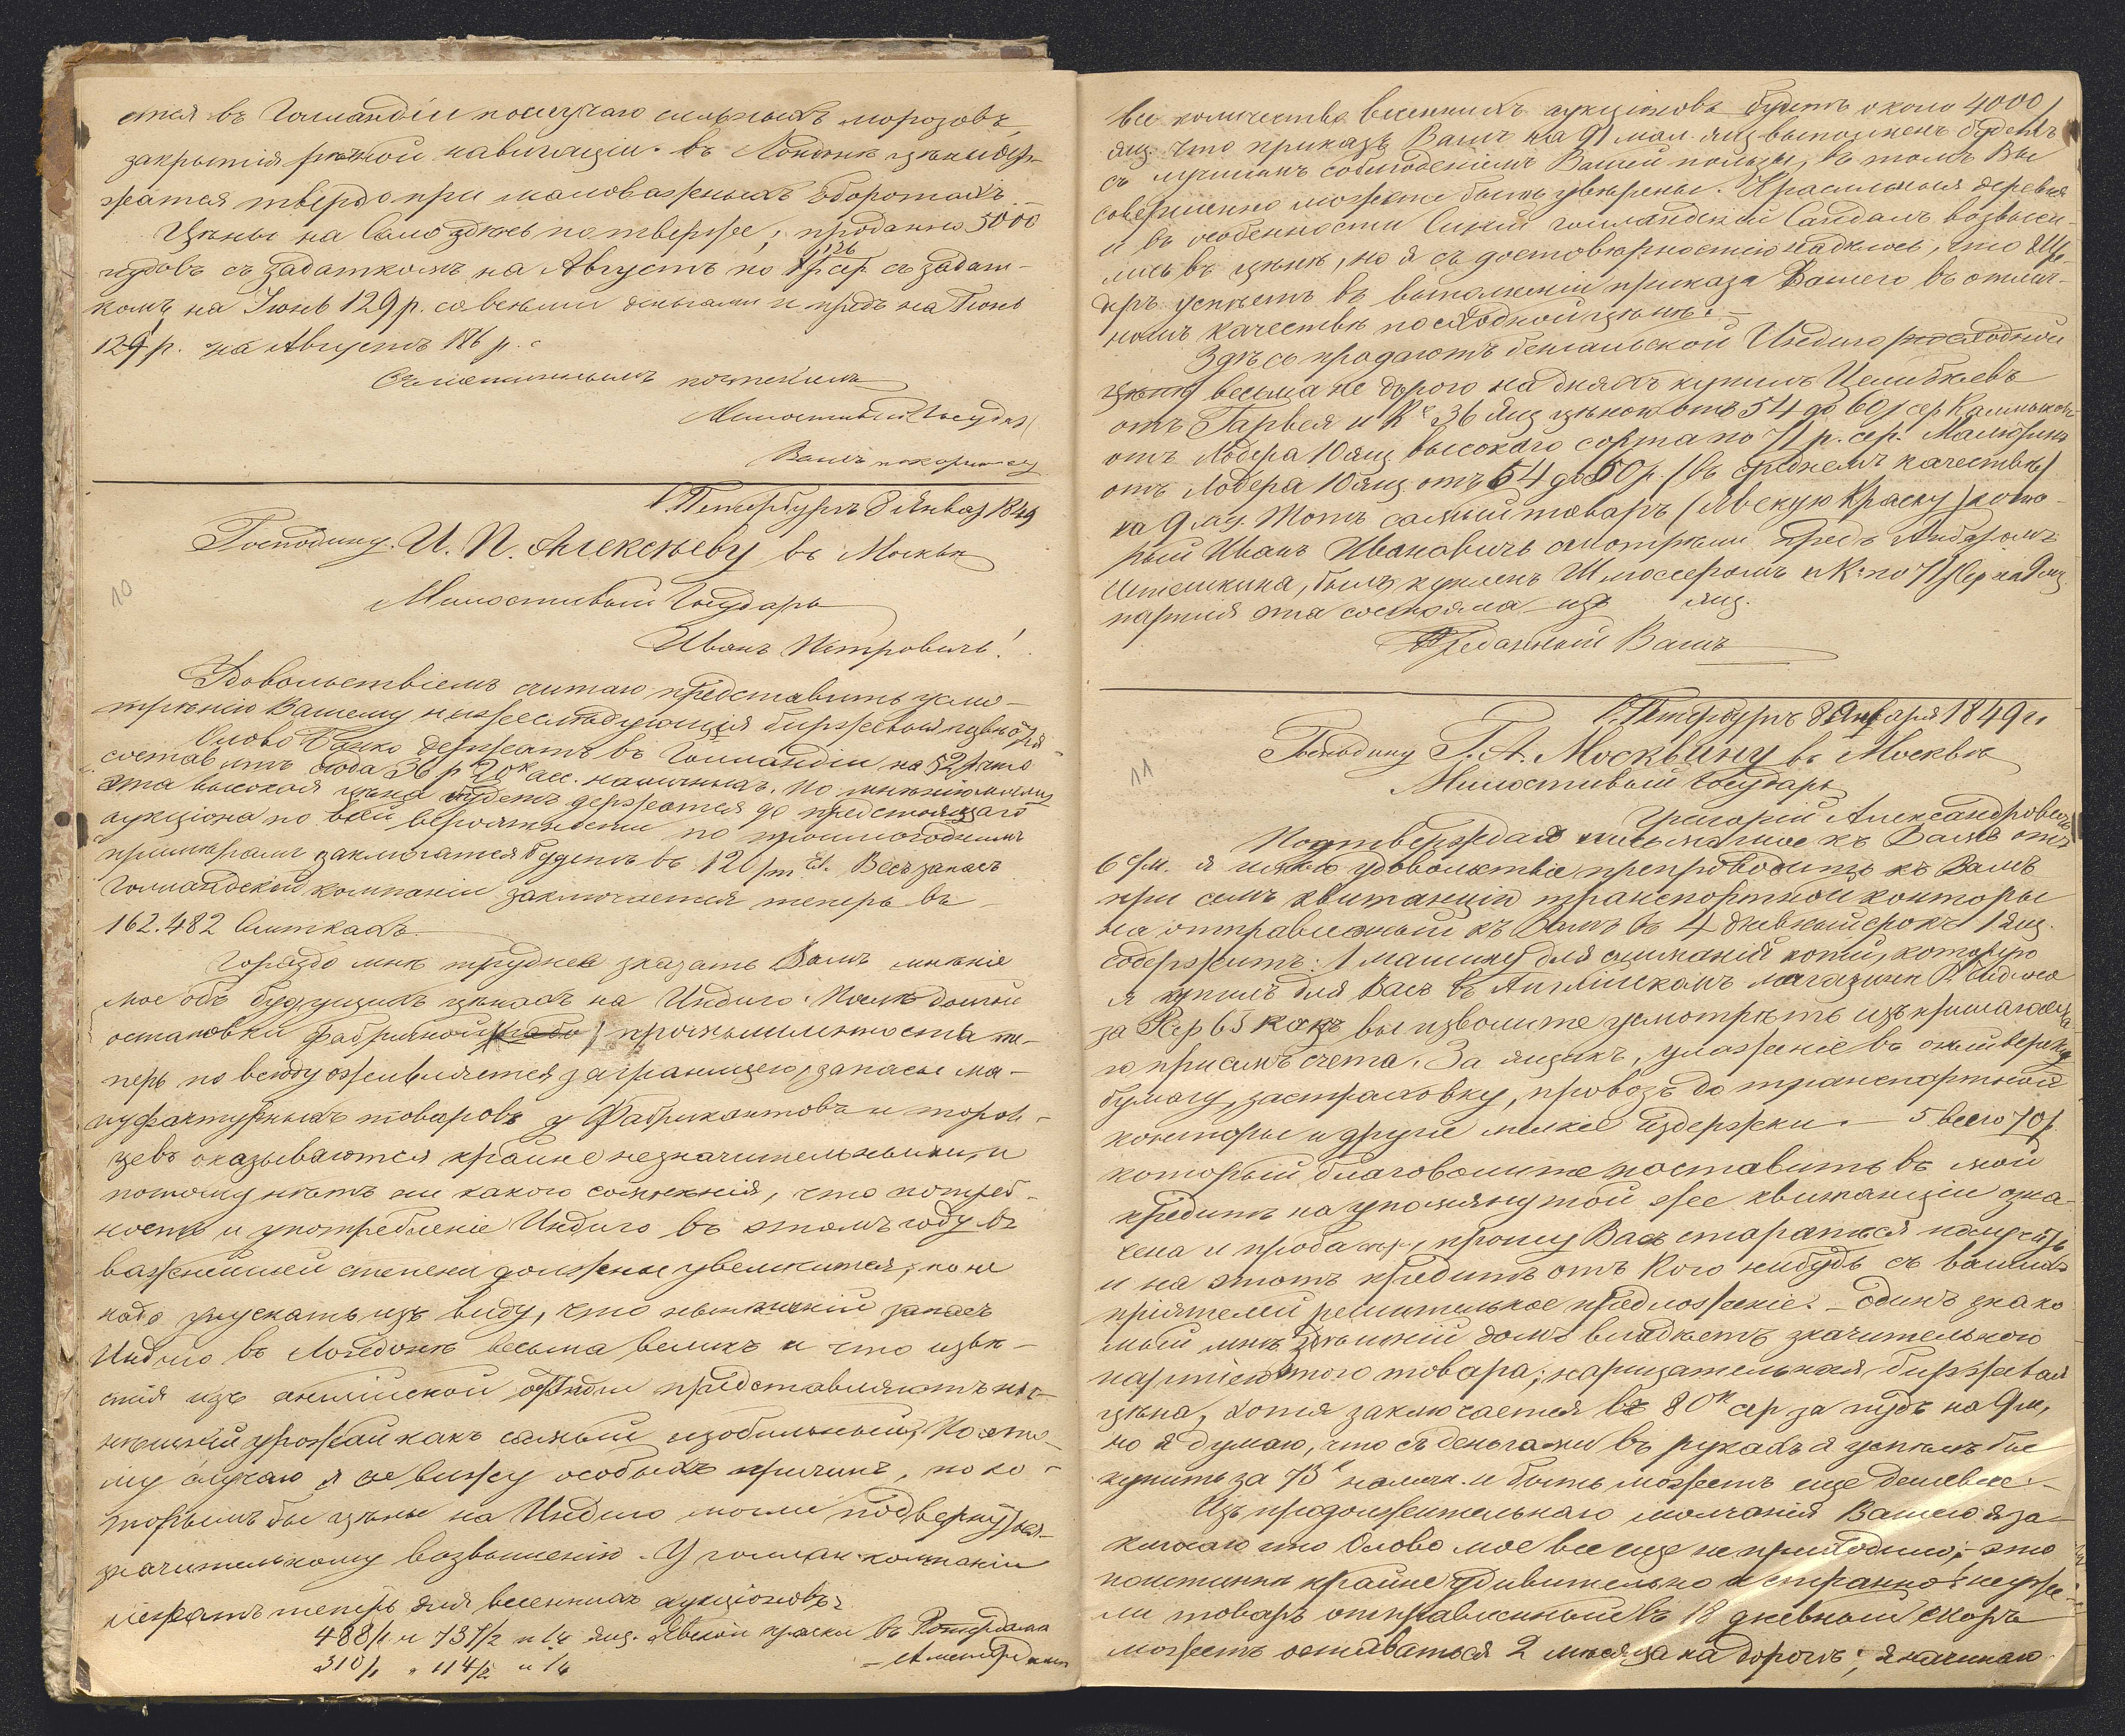 ется въ Голландіи послучаю сильныхъ морозовъ,
закрытія рѣчной навигаціи. въ Лондонѣ цѣны дер-
жатся твердо при маловажныхъ оборотахъ. –
Цѣны на Сало здѣсь потверже; проданно 5000
пудовъ съ задаткомъ на Августъ по 126 р сер. съ задат-
комъ на Іюнь 129 р. со всѣми деньгами впредъ на Іюнь
129 р. на Августъ р.
почтеніемъ
Милостивый Государь
Вашъ покорный
С. Петербургъ 8 Января 1849
Господину И. П. Алексѣеву въ Москвѣ
10
Милостивый Государь
Иванъ Петровичь!
Удовольствіемъ считаю представить усмо-
трѣнію Вашему нижеслѣдующія биржевыя
Олово Банко держатъ въ Голландіи на 52 что
составитъ сюда 36 р 20к асс. наличныхъ. По мнѣнію
эта высокая цѣна будетъ держатся до предстоящаго
аукціона по всей вѣроятности по прошлогоднимъ
примѣрамъ заключатся будетъ въ 120/m Весь запасъ
Голландской компаніи заключается теперь въ
162.482 слиткахъ.
Гораздо мнѣ труднее указать Вамъ мнѣніе
мое объ будущихъ цѣнахъ на Индиго. Послѣ долгой
остановки фабричной промышленность те-
перь по всюду оживляется заграницею, запасы ма-
нуфактурныхъ товаровъ у Фабрикантовъ и торгов-
цевъ оказываются крайне незначительными, и
потому нѣтъ ни какого сомнѣнія, что потреб-
ность и употребленіе Индиго въ этомъ году въ
важнѣйшей степени должны увеличится, но не
надо упускать изъ виду, что нынѣшній запасъ
Индиго въ Лондонѣ весьма великъ и что извѣ-
стія изъ англійской Индіи представляютъ ны-
нѣшній урожай какъ самый изобильный, По сто-
му случаю я не вижу особыхъ причинъ, по ко-
торымъ бы цѣны на Индиго могли подвергнуться
значительному возвышенію. У голлан. компаніи
лежатъ теперь для весеннихъ аукціоновъ:
488/1 и 737/2 и 1/4 ящ. Явской краски въ Ротердамѣ
310/1 " 114/2 и 1/4 – Амстердамѣ
все количество весеннихъ аукціоновъ будетъ около 4000/
ящ. что приказъ Вашъ на 91 мал. ящ выполненъ будетъ
съ лучшимъ соблюденіемъ Вашей пользы, въ томъ Вы
совершенно можете быть увѣрены. Красильныя деревья
и въ особенности Синій голландскій Сандалъ возвыси-
лись въ цѣнѣ, но я съ достовѣрностію надѣюсь, что
успѣетъ въ выполненіи приказа Вашего въ отлич-
номъ качествѣ по сходной цѣнѣ. –
Здѣсь продаютъ бенгальской Индиго по сходной
цѣнѣ весьма не дорого на дняхъ купилъ Целибѣевъ
отъ Гарвея и Кº 36 ящ цѣною отъ 54 до 60 р сер
отъ Лодера 10 ящ высокаго сорта по 71 р. сер. Малютинъ
отъ Лодера 10 ящ. отъ 54 до 60 р. (въ среднемъ качествѣ)
на 9 мц. Тотъ самый товаръ (Явскую Краску) кото-
рый Иванъ Ивановичь смотрѣли предъ Амбаромъ
былъ купленъ Шлоссеромъ и Кº по 71 р сер на 9 мц
партія эта состояла изъ ящ.
Преданный Вамъ
С. Петербургъ 8 Января 1849 г.
Господину Г. А. Москвину въ Москвѣ
11
Милостивый Государь
Григорій Александровичь
Подтверждая письмо мое къ Вамъ отъ
6 с/м. я имѣю удовольствіе препроводить къ Вамъ
при семъ квитанцію транспортной конторы
на отправленный къ Вамъ въ 4 дневный срокъ 1 ящ.
содержитъ: 1 машину для сниманія копій, которую
я купилъ для Васъ въ Англійскомъ магазинѣ
за Rср 65 какъ вы изволите усмотрѣть изъ прилагаема-
го при семъ счета. За ящикъ, уложеніе въ
бумагу, застраховку, провозъ до транспортной
конторы и другіе мелкіе издержки – 5 всего 70 р.
который благоволите поставить въ мой
кредитъ на упомянутой же квитанціи озна-
чена и проба прошу Васъ старатся получить
и на этотъ кредитъ отъ Кого нибудь съ вашихъ
пріятелей решительное предложеніе. – Одинъ знако-
мый мнѣ здѣшній домъ владѣетъ значительною
партіею того товара; нарицательная биржевая
цѣна, хотя заключается въ 80к сер за пудъ на 9 м,
но я думаю, что съ деньгами въ рукахъ я успѣлъ бы
купить за 75к наличн. и быть можетъ еще дешевле. –
Изъ продолжительнаго молчанія Вашего я за-
ключаю что Олово мое все еще не приходило; – это
поистиннѣ крайне удивительно и странно! неуже-
ли товаръ отправленный въ 18 дневный скоръ
можетъ оставаться 2 мѣсяца на дорогѣ; я начинаю